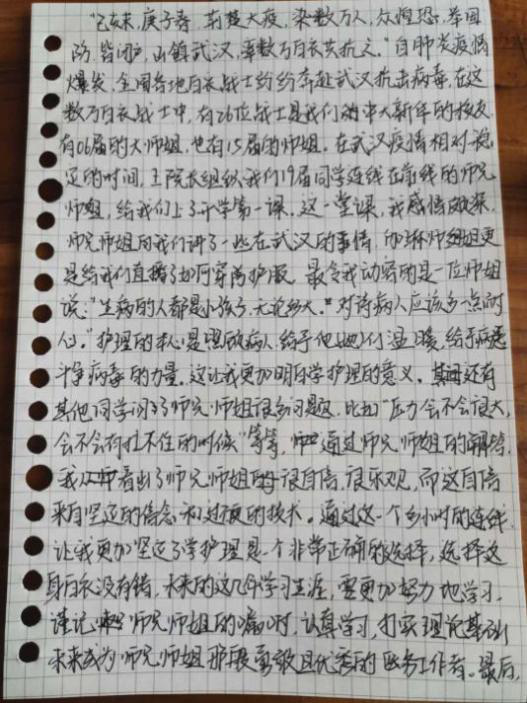 "己亥末，庚子春，荆楚大疫，染数万人，众惶恐，举国
防，皆闭户，山镇武汉，率数万白衣共抗之。"自肺炎疫情
爆发，全国各地白衣战士纷纷奔赴武汉抗击病毒，在这
数万白衣战士中，有26位战士是我们 中大新华的校友，
有06届的大师姐，也有15届的师姐。在武汉疫情相对稳
定的时间，王院长组织我们19届同学连线在前线的师兄
师姐，给我们上了开学第一课。这一堂课，我感悟颇深，
师兄师姐向我们讲了一些在武汉的事情， 师姐更
是给我们直播了如何穿防护服。最令我动容的是一位师姐
说："生病的人都是小孩子，无论多大。"对待病人应该多一点耐
心。"护理的本心是照顾病人，给予他她们温暖，给予病患
斗争病毒的力量。这让我更加明白学护理的意义。还有
其他同学问了师兄师姐很多问题，比如"压力会不会很大，
会不会有扛不住的时候"等等，通过师兄师姐的解答，
我从中看出了师兄师姐的很自信，很乐观，而这自信
来自坚定的信念和过硬的技术。通过这一个多小时的连线，
让我更加坚定了学护理是个非常正确的选择，选择这
身白衣没有错，未来的这几年学习生涯，要更加努力地学习，
谨记 师兄师姐的嘱咐，认真学习，打实理论基础，
未来成为师兄师姐那般勇敢且优秀的医务工作者。最后，